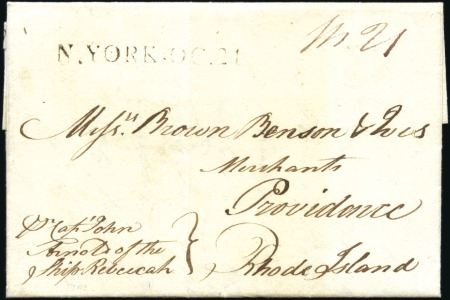 N.YORK·OC.21
Sh. 21
Messrs. Brown Benson & Ives
Merchants
Providence
Rhode Island
pr Capt John
of the
Ship Rebeccah